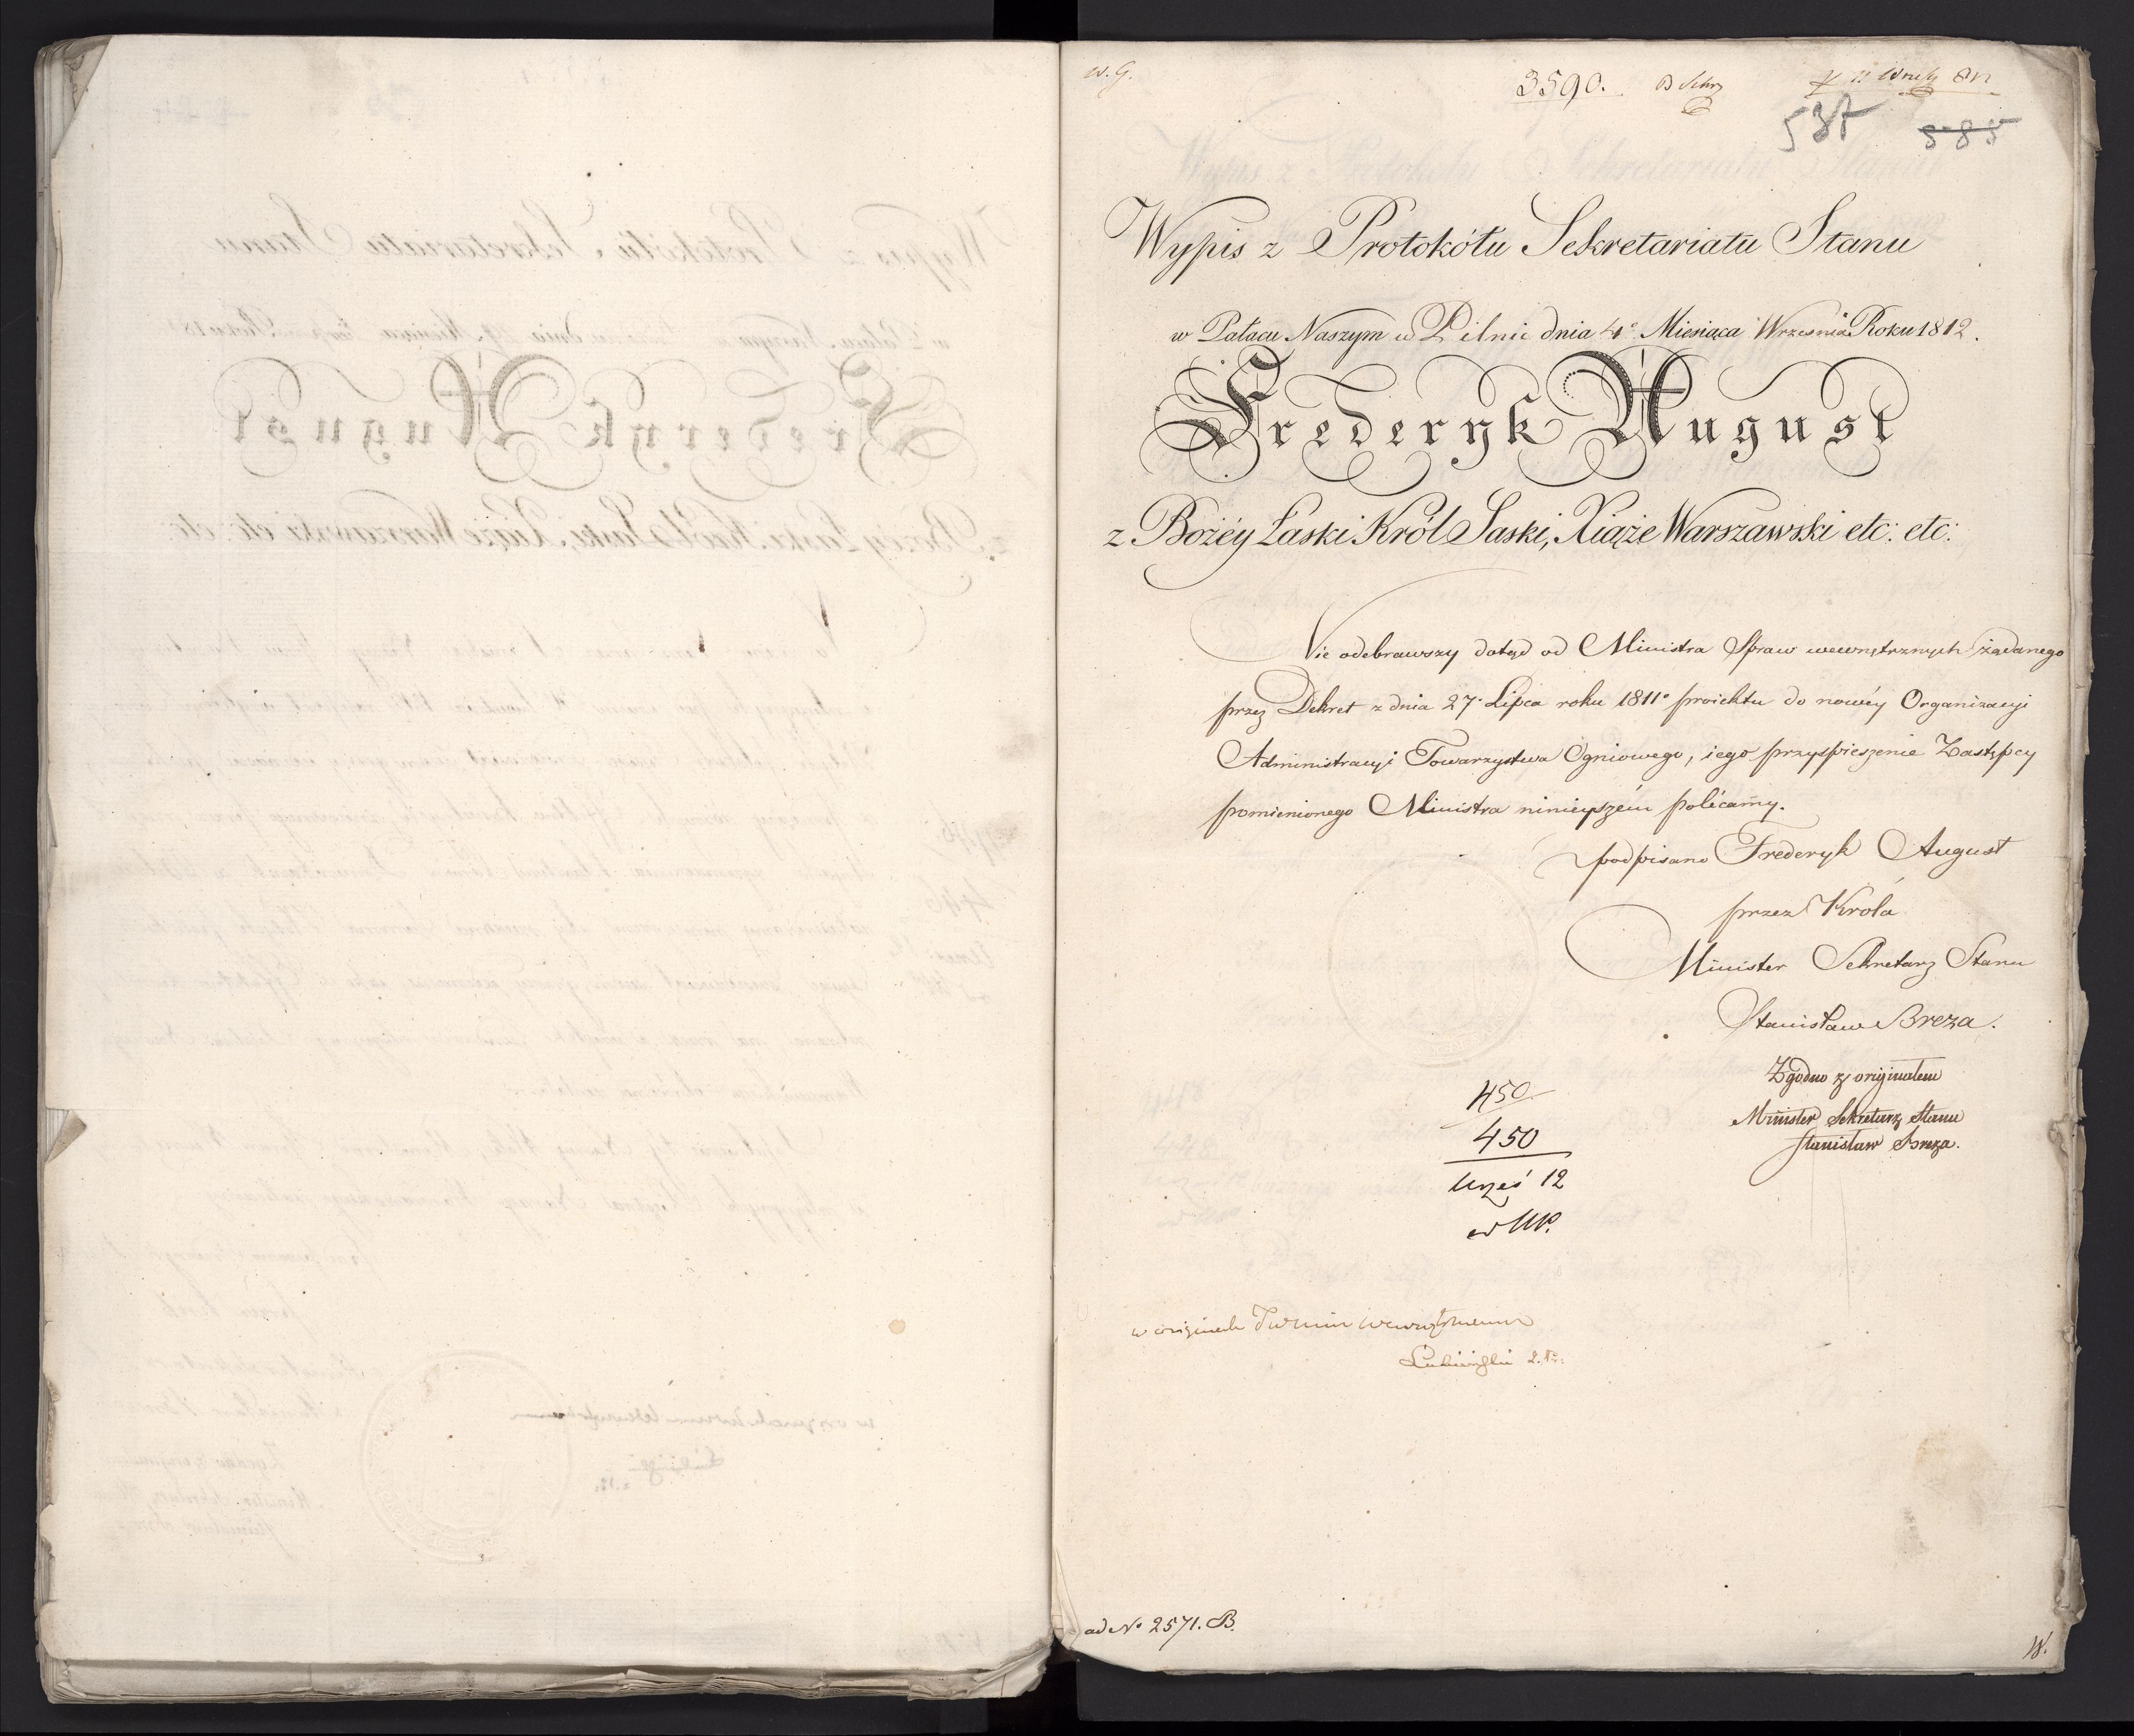 w. G.
3590.
537 585
Wypis z Protokółu Sekretariatu Stanu
w Pałacu Naszym w Pilnic dnia 4º Miesiąca Września Roku 1812.
Frederyk August
z Bożéy Łaski Król Saski, Xiąże Warszawski etc: etc:
Nie odebrawszy dotąd od Ministra Spraw wewnętrznych żądanego
przez Dekret z dnia 27. Lipca roku 1811º proiektu do nowéy Organizacyi
Administracyi Towarzystwa Ogniowego, iego przyspieszenie Zastępcy
pomienionego Ministra ninieyszém polécamy.
podpisano Frederyk August
przez Króla
Minister Sekretarz Stanu
Stanisław Breza.
Zgodno z originałem
Minister Sekretarz Stanu
Stanisław Breza.
450
450
12
w originale
ad Nº 2571. B.
W.